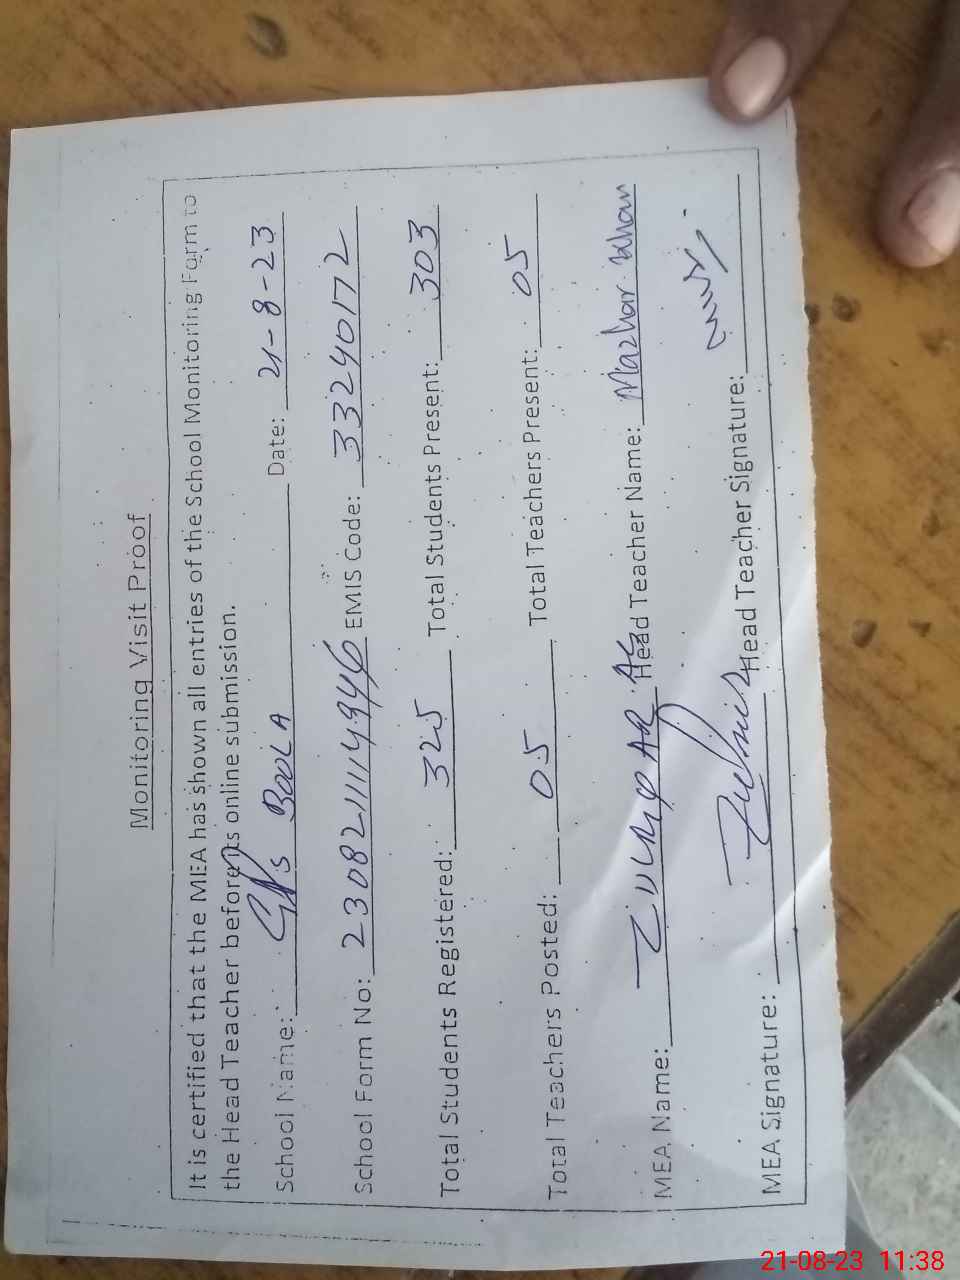 Monitoring Visit Proof
It is certified that the MEA has shown all entries of the School Monitoring Form to
the Head Teacher before its online submission.
School Name: GPS BOOLA Date: 21-8-23
School Form No: 230821111494 6 EMIS Code: 33240172
Total Students Registered: 325 Total Students Present: 303
Total Teachers Posted: 05 Total Teachers Present: 05
MEA Name: ZULFIQAR Head Teacher Name: Mazhar Khan
MEA Signature: Head Teacher Signature:
21-08-23 11:38